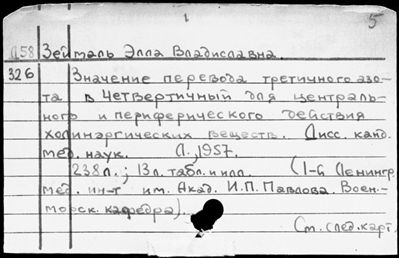 5
Д58 Зеймаль Элла Владиславна.
326 Значение перевода третичного азо-
та в четвертичный для централь-
ного и периферического действия
холинэргических веществ. Дисс. канд.
мед. наук. Л., 1957.
238л.; 13л. табл. и илл. (1-й Ленингр.
мед. ин-т им. Акад. И.П. Павлова. Воен.-
морск. кафедра).
См. след. карт.